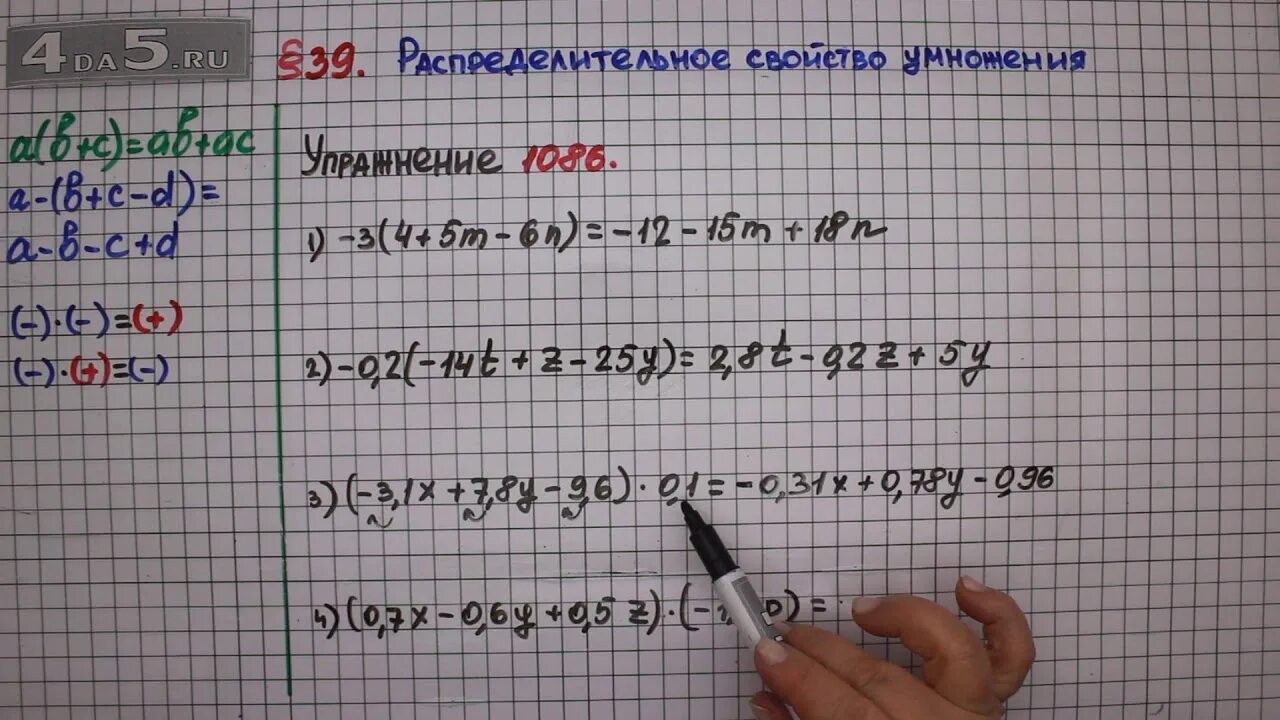 4DA5.RU
§39. Распределительное свойство умножения
a(b+c)=ab+ac
a-(b+c-d)=
a-b-c+d
(-)·(-)=(+)
(-)·(+)=(-)
Упражнение 1086.
1) -3(4+5m-6n)=-12-15m+18n
2) -0,2(-14t+z-25y)=2,8t-0,2z+5y
3) (-3,1x+7,8y-9,6)·0,1=-0,31x+0,78y-0,96
4) (0,7x-0,6y+0,5z)·(-1 0)=